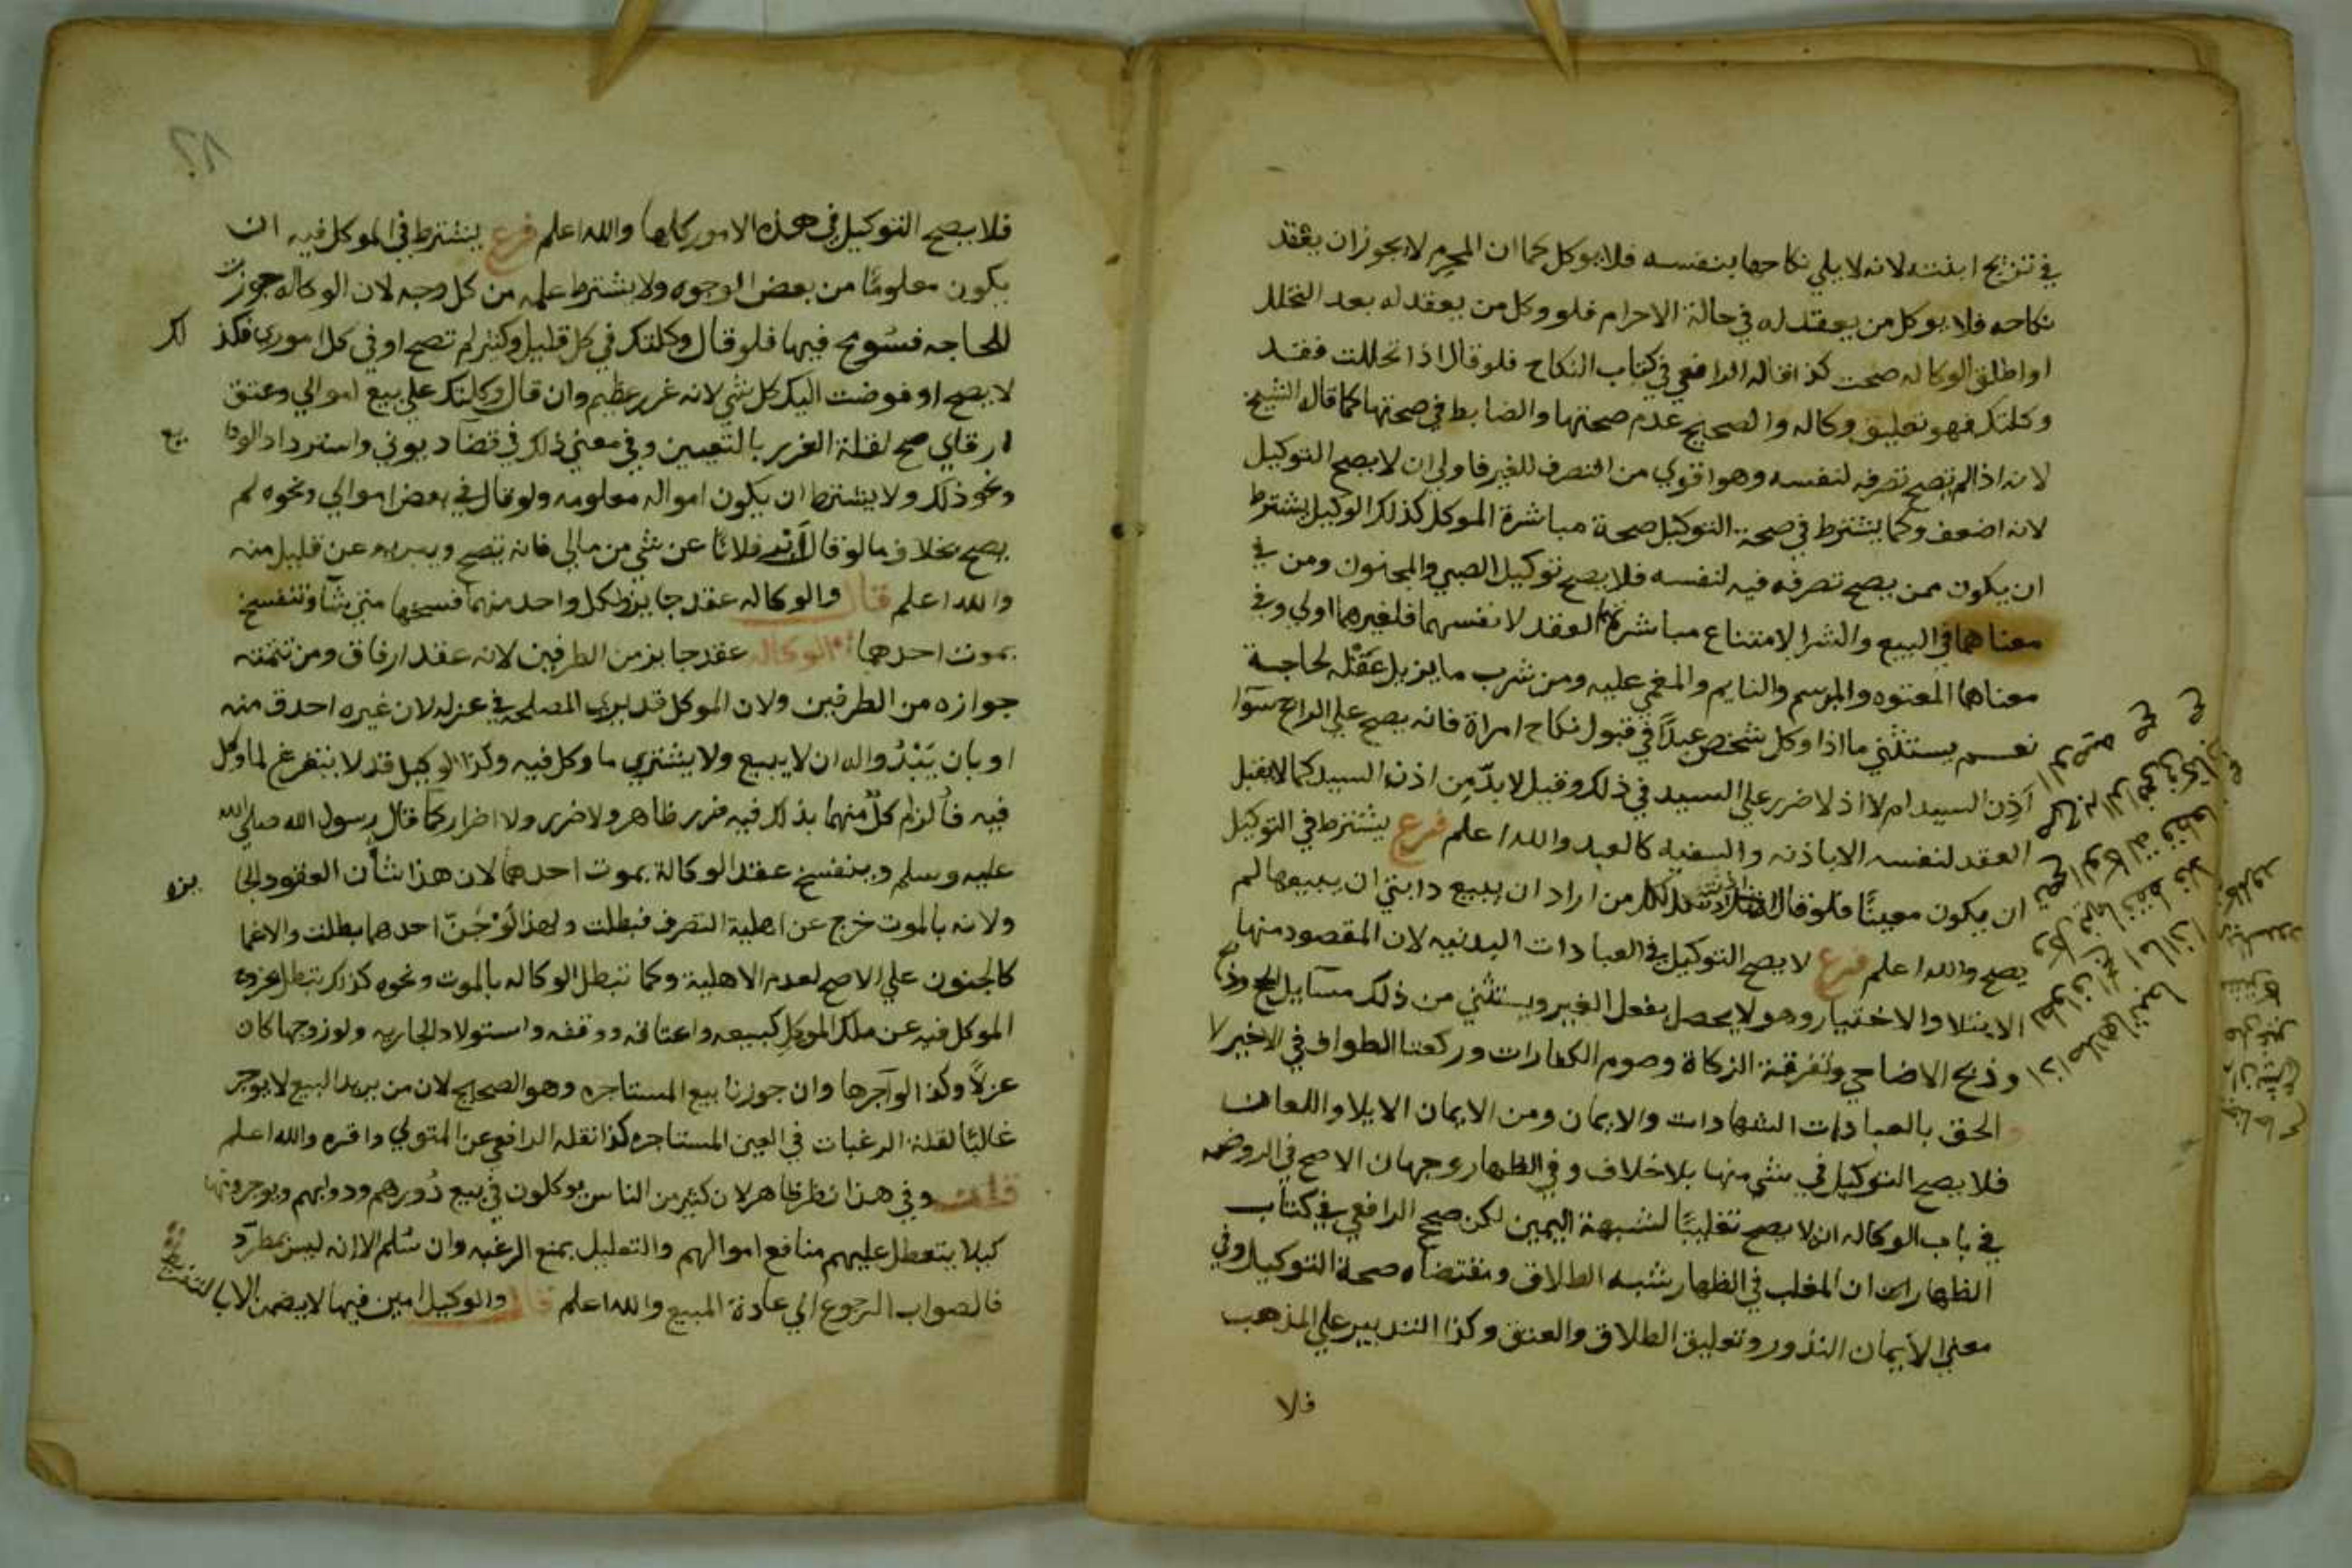 في تزويج ابنته لانه لا يلي نكاحها بنفسه فلا يوكل كما ان المحرم لا يجوز ان يعقد
نكاحه فلا يوكل من يعقد له في حالة الاحرام فلو وكل من يعقد له بعد التحلل
او اطلق الوكاله صحت كذا قاله الرافعي في كتاب النكاح فلو قال اذا تحللت فقد
وكلتك فهو تعليق وكاله والصحيح عدم صحتها والضابط في صحتها كما قال الشيخ
لانه اذا لم يصح تصرفه لنفسه وهو اقوي من التصرف للغير فاولي ان لا يصح التوكيل
لانه اضعف وكما يشترط في صحة التوكيل صحة مباشرة الموكل كذلك الوكيل يشترط
ان يكون ممن يصح تصرفه فيه لنفسه فلا يصح توكيل الصبي والمجنون ومن في
معناهما في البيع والشرا لامتناع مباشرتهما العقد لانفسهما فلغيرهما اولي وفي
معناهما المعتوه والمبرسم والنايم والمغمي عليه ومن شرب ما يزيل عقله لحاجة
نعم يستثني ما اذا وكل شخص عبدًا في قبول نكاح امراة فانه يصح علي الراجح سوآ
اذن السيد ام لا اذ لا ضرر علي السيد في ذلك وقيل لا بدّ من اذن السيد كما لا يقبل
العقد لنفسه الا باذنه والسفيه كالعبد والله اعلم فرع يشترط في التوكيل
ان يكون معينًا فلو قال اذنت لكل من اراد ان يبيع دابتي ان يبيعها لم
يصح والله اعلم فرع لا يصح التوكيل في العبادات البدنيه لان المقصود منها
الابتلا والاختبار وهو لا يحصل بفعل الغير ويستثني من ذلك مسآيل الحج وذبح
وذبح الاضاحي وتفرقة الزكاة وصوم الكفارات وركعتا الطواف في الاخير لا
والحق بالعبادات الشهادات والايمان ومن الايمان الايلا واللعان
فلا يصح التوكيل في شي منها بلا خلاف وفي الظهار وجهان الاصح في الروضه
في باب الوكاله انه لا يصح تغليبًا لشبهة اليمين لكن صحح الرافعي في كتاب
الظهار ان المغلب في الظهار شبه الطلاق ومقتضاه صحة التوكيل وفي
معني الايمان النذور وتعليق الطلاق والعتق وكذا التدبير علي المذهب
فلا
٢٨
فلا يصح التوكيل في هذه الامور كلها والله اعلم فرع يشترط في الموكل فيه ان
يكون معلومًا من بعض الوجوه ولا يشترط علمه من كل وجه لان الوكاله جوزت
للحاجه فسُومح فيها فلو قال وكلتك في كل قليل وكثير لم تصح او في كل اموري فكذلك
لا يصح او فوضت اليك كل شي لانه غرر عظيم وان قال وكلتك علي بيع اموالي وعتق
ارقاي صح لقلة الغرر بالتعيين وفي معني ذلك في قضآ ديوني واسترداد الودايع
ونحو ذلك ولا يشترط ان يكون امواله معلومه ولو قال في بعض اموالي ونحوه لم
يصح بخلاف ما لو قال ابرئ فلانًا عن شي من مالي فانه تصح ويبريه عن قليل منه
والله اعلم قال والوكاله عقد جايز ولكل واحد منهما فسخها متي شآ وتنفسخ
بموت احدهما الوكاله عقد جايز من الطرفين لانه عقد ارفاق ومن تتمته
جوازه من الطرفين ولان الموكل قد يري المصلحه في عزله لان غيره احدق منه
او بان يَبْدُوا له ان لا يبيع ولا يشتري ما وكل فيه وكذا الوكيل قد لا يتفرغ لما وكل
فيه فالزام كلّ منهما بذلك فيه ضرر ظاهر ولا ضرر ولا اضرار كما قال رسول الله صلي الله
عليه وسلم وينفسخ عقد الوكالة بموت احدهما لان هذا شأن العقود الجايزه
ولانه بالموت خرج عن اهلية التصرف فبطلت ولهذا لو جُنّ احدهما بطلت والاغما
كالجنون علي الاصح لعدم الاهلية وكما تبطل الوكاله بالموت ونحوه كذلك تبطل بخروج
الموكل فيه عن ملك الموكل كبيعه واعتاقه ووقفه واستيلاد الجاريه ولو زوجها كان
عزلاً وكذا لو آجرها وان جوزنا بيع المستاجره وهو الصحيح لان من يريد البيع لا يوجر
غالبًا لقلة الرغبات في العين المستاجره كذا نقله الرافعي عن المتولي واقره والله اعلم
قلت وفي هذا نظر ظاهر لان كثير من الناس يوكلون في بيع دُورهم ودوابهم ويوجرونها
كيلا يتعطل عليهم منافع اموالهم والتعليل بمنع الرغبه وان سُلم الا انه ليس بمطرّد
فالصواب الرجوع الي عادة المبيع والله اعلم قال والوكيل امين فيما لا يضمن الا بالتفريط